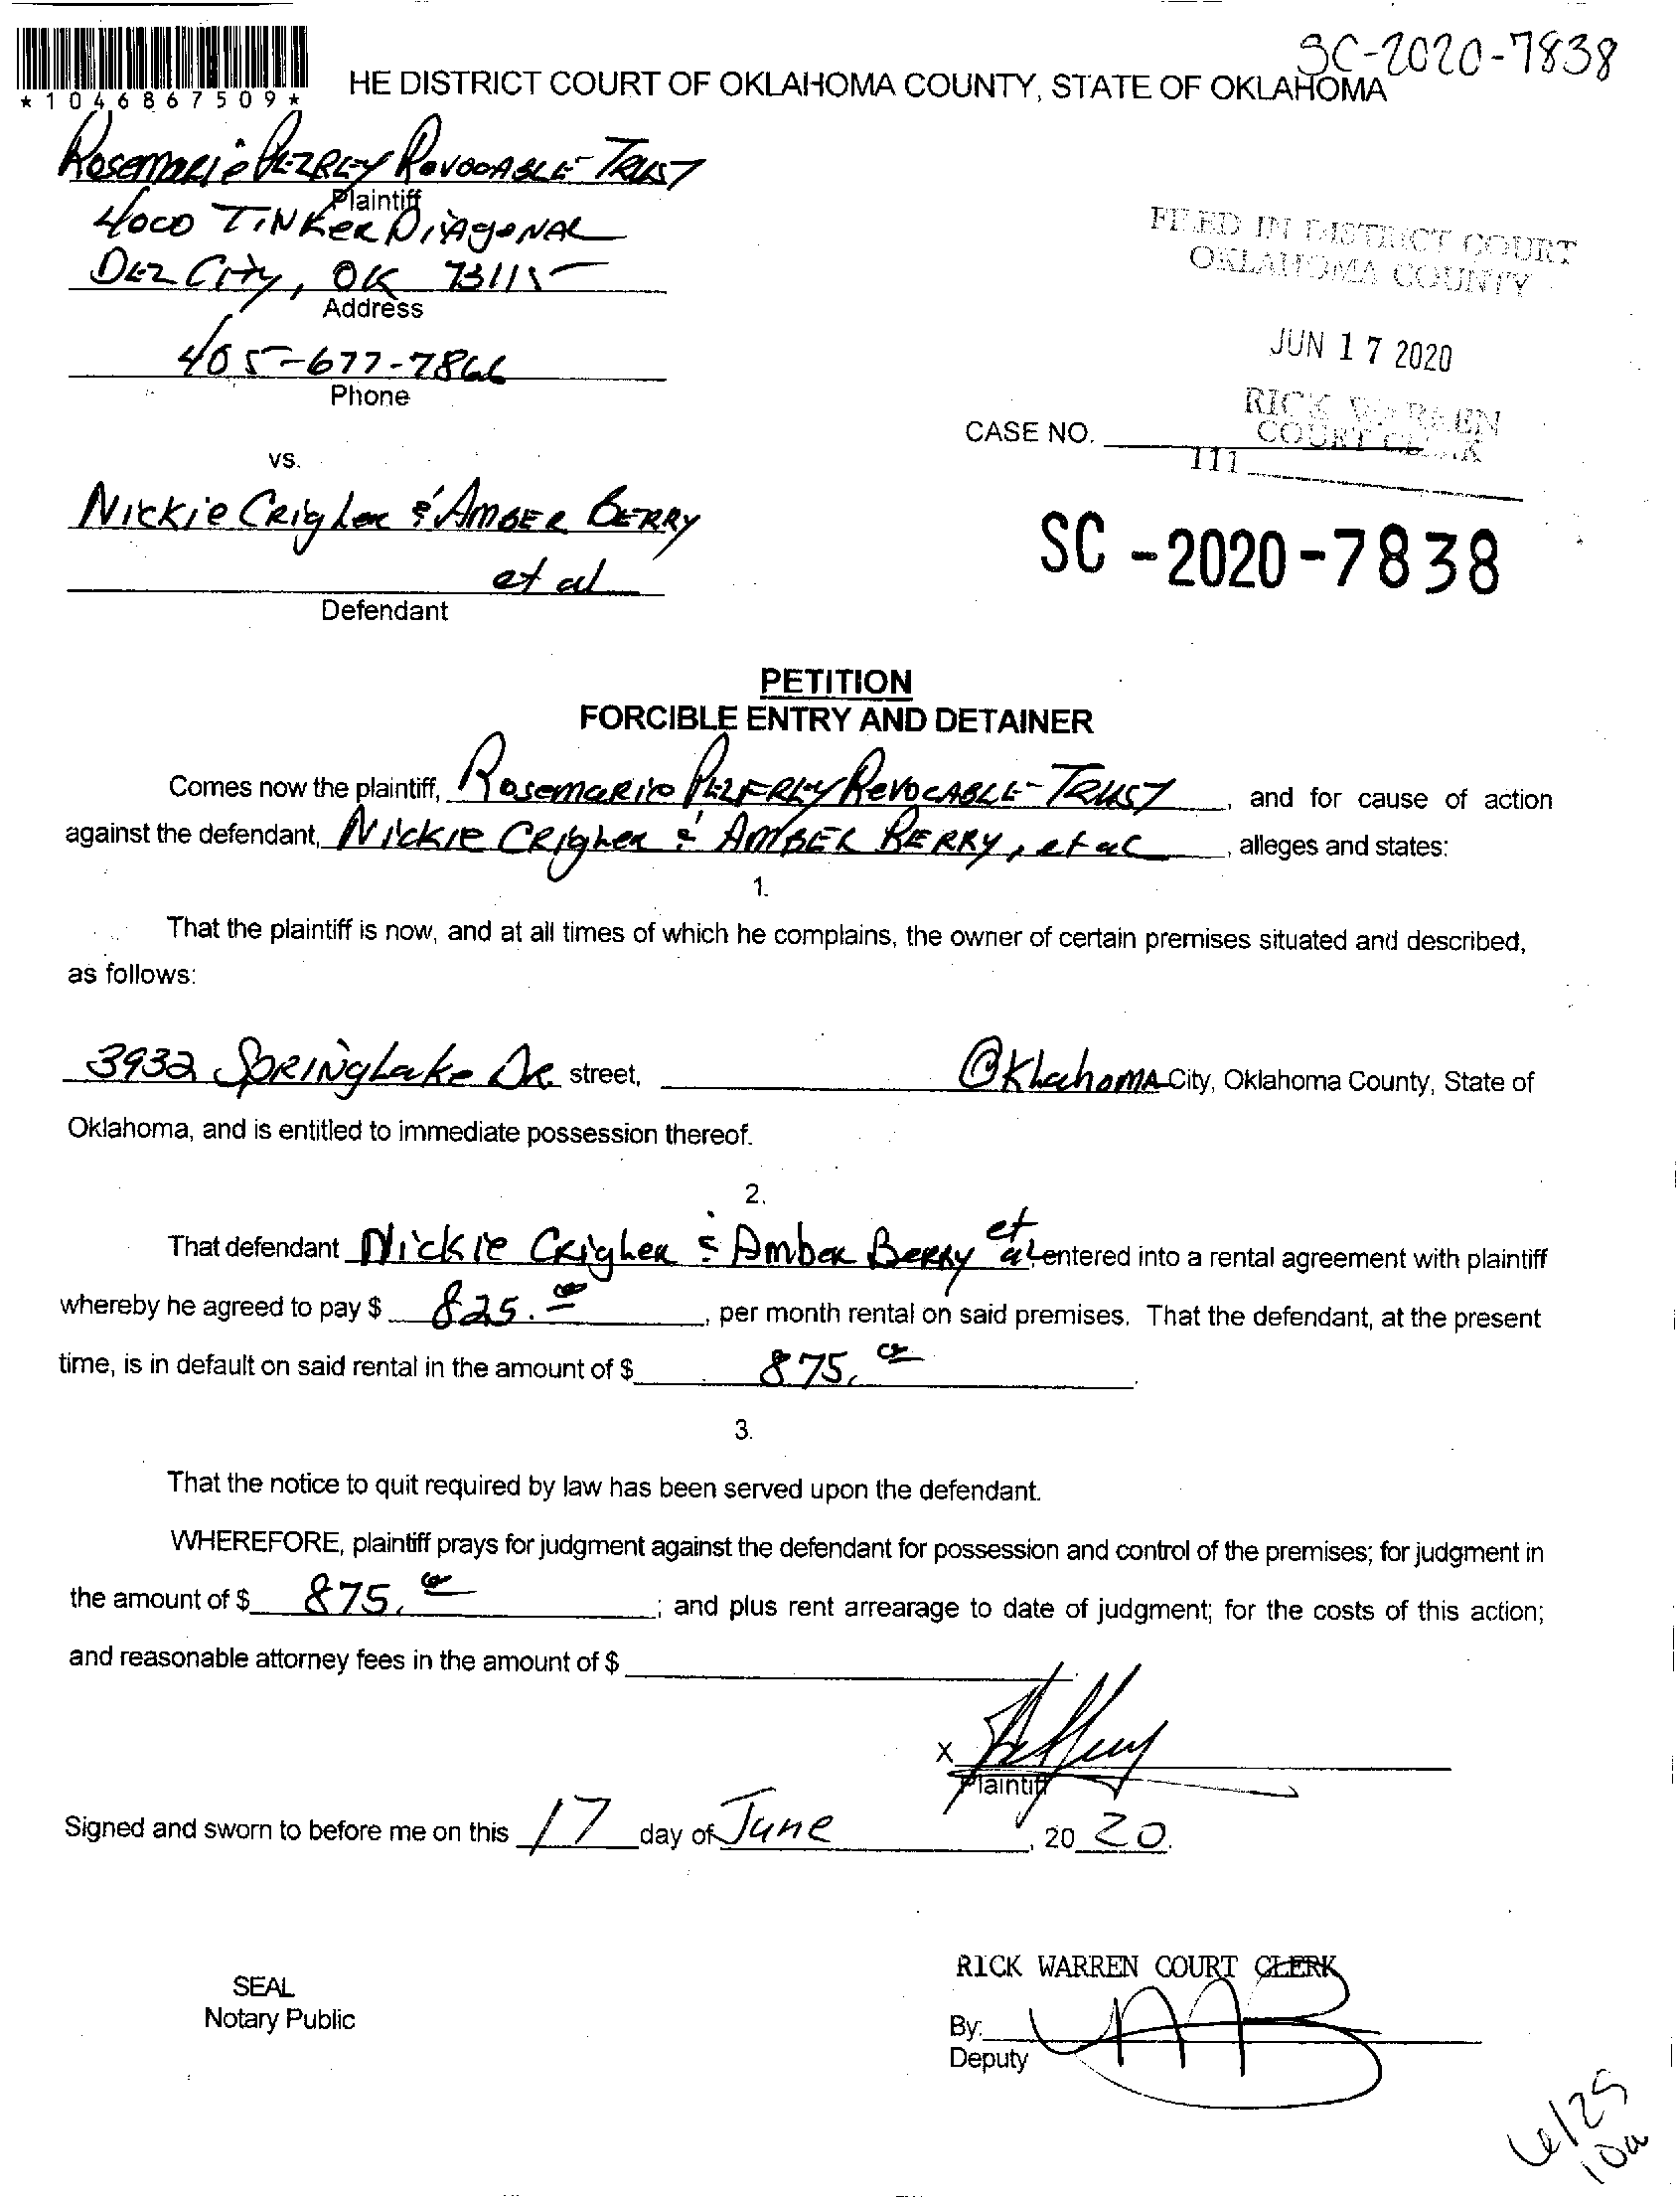 SC-2020-7838
*1046867509*
HE DISTRICT COURT OF OKLAHOMA COUNTY, STATE OF OKLAHOMA
Rosemarie Revocable Trust
Plaintiff
4000 Tinker Diagonal
Del City, OK 73115
Address
405-677-7866
Phone
vs.
Nickie Crigler & Amber Berry
et al
Defendant
FILED IN DISTRICT COURT
OKLAHOMA COUNTY
JUN 17 2020
RICK WARREN
COURT CLERK
CASE NO.
111
SC-2020-7838
PETITION
FORCIBLE ENTRY AND DETAINER
Comes now the plaintiff, Rosemarie Revocable Trust, and for cause of action
against the defendant, Nickie Crigler & Amber Berry, et al, alleges and states:
1.
That the plaintiff is now, and at all times of which he complains, the owner of certain premises situated and described,
as follows:
3932 Springlake Dr street, Oklahoma City, Oklahoma County, State of
Oklahoma, and is entitled to immediate possession thereof.
2.
That defendant Nickie Crigler & Amber Berry et al entered into a rental agreement with plaintiff
whereby he agreed to pay $ 825.00, per month rental on said premises. That the defendant, at the present
time, is in default on said rental in the amount of $ 875.00.
3.
That the notice to quit required by law has been served upon the defendant.
WHEREFORE, plaintiff prays for judgment against the defendant for possession and control of the premises; for judgment in
the amount of $ 875.00; and plus rent arrearage to date of judgment; for the costs of this action;
and reasonable attorney fees in the amount of $
X
Plaintiff
Signed and sworn to before me on this 17 day of June, 2020.
SEAL
Notary Public
RICK WARREN COURT CLERK
By:
Deputy
6/25
10a